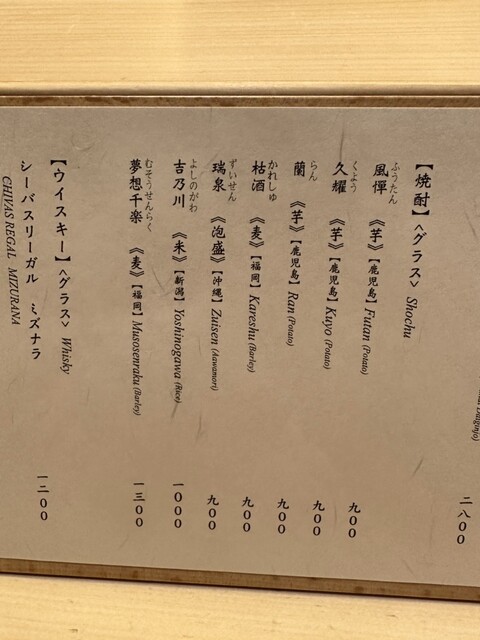 二八〇〇
【焼酎】<グラス> Shochu
ふうたん
風憚 《芋》【鹿児島】 Futan (Potato) 九〇〇
くよう
久耀 《芋》【鹿児島】 Kuyo (Potato) 九〇〇
らん
蘭 《芋》【鹿児島】 Ran (Potato) 九〇〇
かれしゅ
枯酒 《麦》【福岡】 Kareshu (Barley) 九〇〇
ずいせん
瑞泉 《泡盛》【沖縄】 Zuisen (Aawamori) 九〇〇
よしのがわ
吉乃川 《米》【新潟】 Yoshinogawa (Rice) 一〇〇〇
むそうせんらく
夢想千楽 《麦》【福岡】 Musosenraku (Barley) 一三〇〇
【ウイスキー】<グラス> Whisky
シーバスリーガル ミズナラ 一二〇〇
CHIVAS REGAL MIZURANA